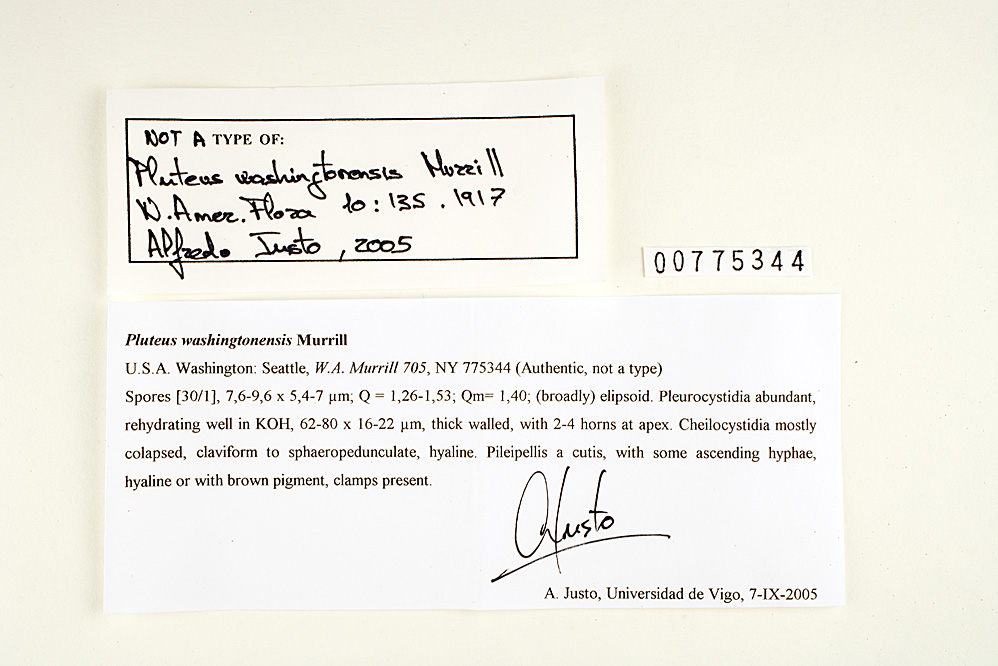 NOT A TYPE OF:
Pluteus washingtonensis Murrill
N. Amer. Flora 10: 135. 1917
Alfredo Justo, 2005
00775344
Pluteus washingtonensis Murrill
U.S.A. Washington: Seattle, W.A. Murrill 705, NY 775344 (Authentic, not a type)
Spores [30/1], 7,6-9,6 x 5,4-7 µm; Q = 1,26-1,53; Qm= 1,40; (broadly) elipsoid. Pleurocystidia abundant,
rehydrating well in KOH, 62-80 x 16-22 µm, thick walled, with 2-4 horns at apex. Cheilocystidia mostly
colapsed, claviform to sphaeropedunculate, hyaline. Pileipellis a cutis, with some ascending hyphae,
hyaline or with brown pigment, clamps present.
AJusto
A. Justo, Universidad de Vigo, 7-IX-2005